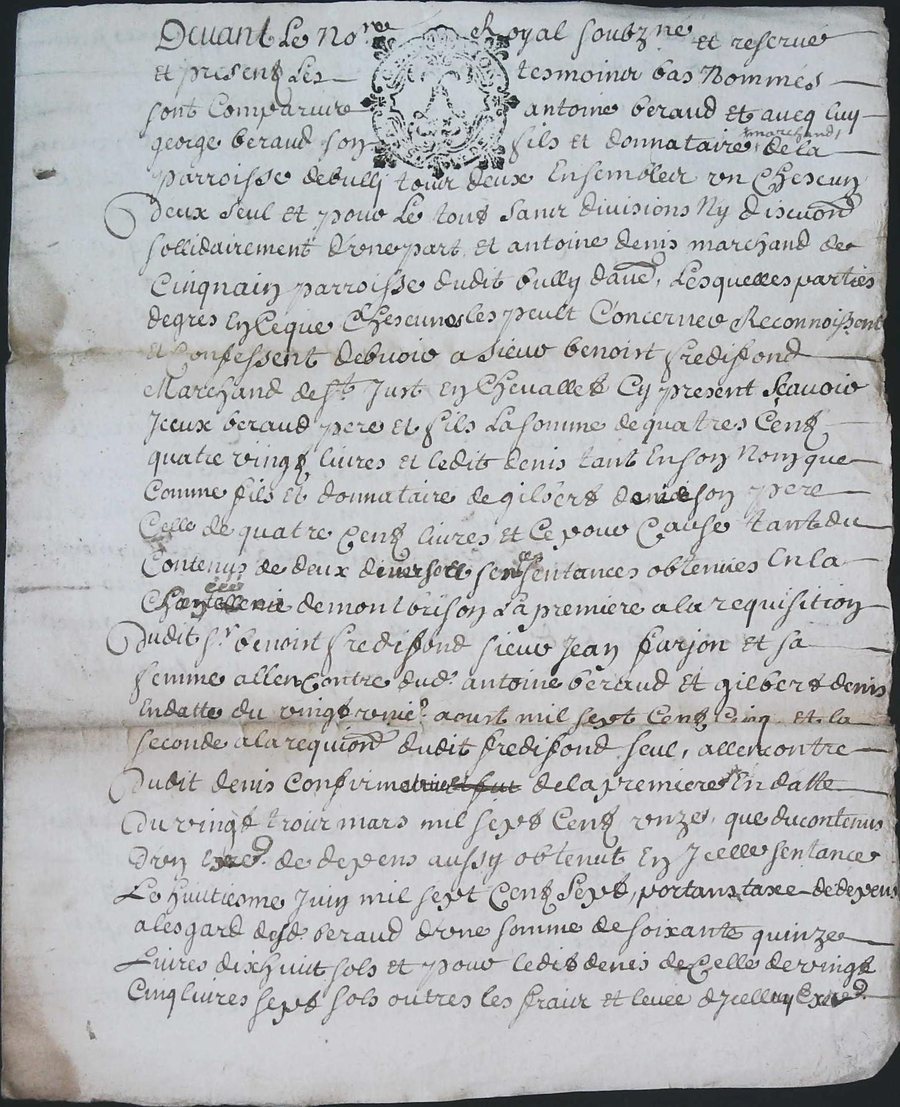 Devant Le No^re Royal soubzne et reservé
et presentz Les tesmoinr bas Nommés
sont Comparure antoine beraud et aucq luy
george beraud son fils et donnataire marchands de la
parroisse debully tour deux Ensembler un Chescun
deux seul et pour Le tous sanr divisions Ny discuon
sollidairement d'une part, et antoine denis marchand de
Cinqnain parroisse dudit bully dauē, Lesquelles parties
degres En ceque Chescunes les peult Concerner Reconnoissent
et Confessent debvoir a sieur benoist fredifond
Marchand de s^t Just En Chevallet Cy present sçavoir
Jceux beraud pere et fils La somme de quatres Centz
quatre vingt livres et ledit denis tant En son Nom que
Comme fils et donnataire de gilbert denis son pere
Celle de quatre Centz livres et ce pour Cause tant du
Contenus de deux sentances obtenues En la
demontbrison La premiere a la requisition
dudit s^r benoist fredifond sieur Jean farjon et sa
femme allencontre dud. antoine beraud et gilbert denis
En datte du vingt unie. aoust mil sept Centz Cinq et la
seconde a la requion dudit fredifond seul, allencontre
dudit denis de la premiere En datte
du vingt trour mars mil sept Centz unze, que du contenus
d'un de depens aussy obtenut En Jcelle sentance
Le huitiesme Juin mil sept Centz sept, portans taxe de depens
a lesgard desd. beraud d'une somme de soixante quinze
Livres dixhuit sols et pour ledit denis de Celle de vingt
Cinq livres sept sols outres les fraix et levée d'jcelluy